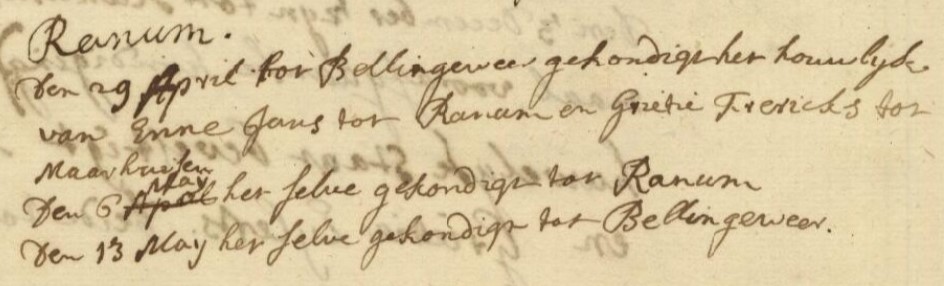 Ranum.
Den 29 April tot Bellingeweer gekondigt het houwlyk
van Enne Jans tot Ranum en Grietie Frericks tot
Maarhuisen
May
Den 6 April het selve gekondigt tot Ranum
Den 13 May het selve gekondigt tot Bellingeweer.